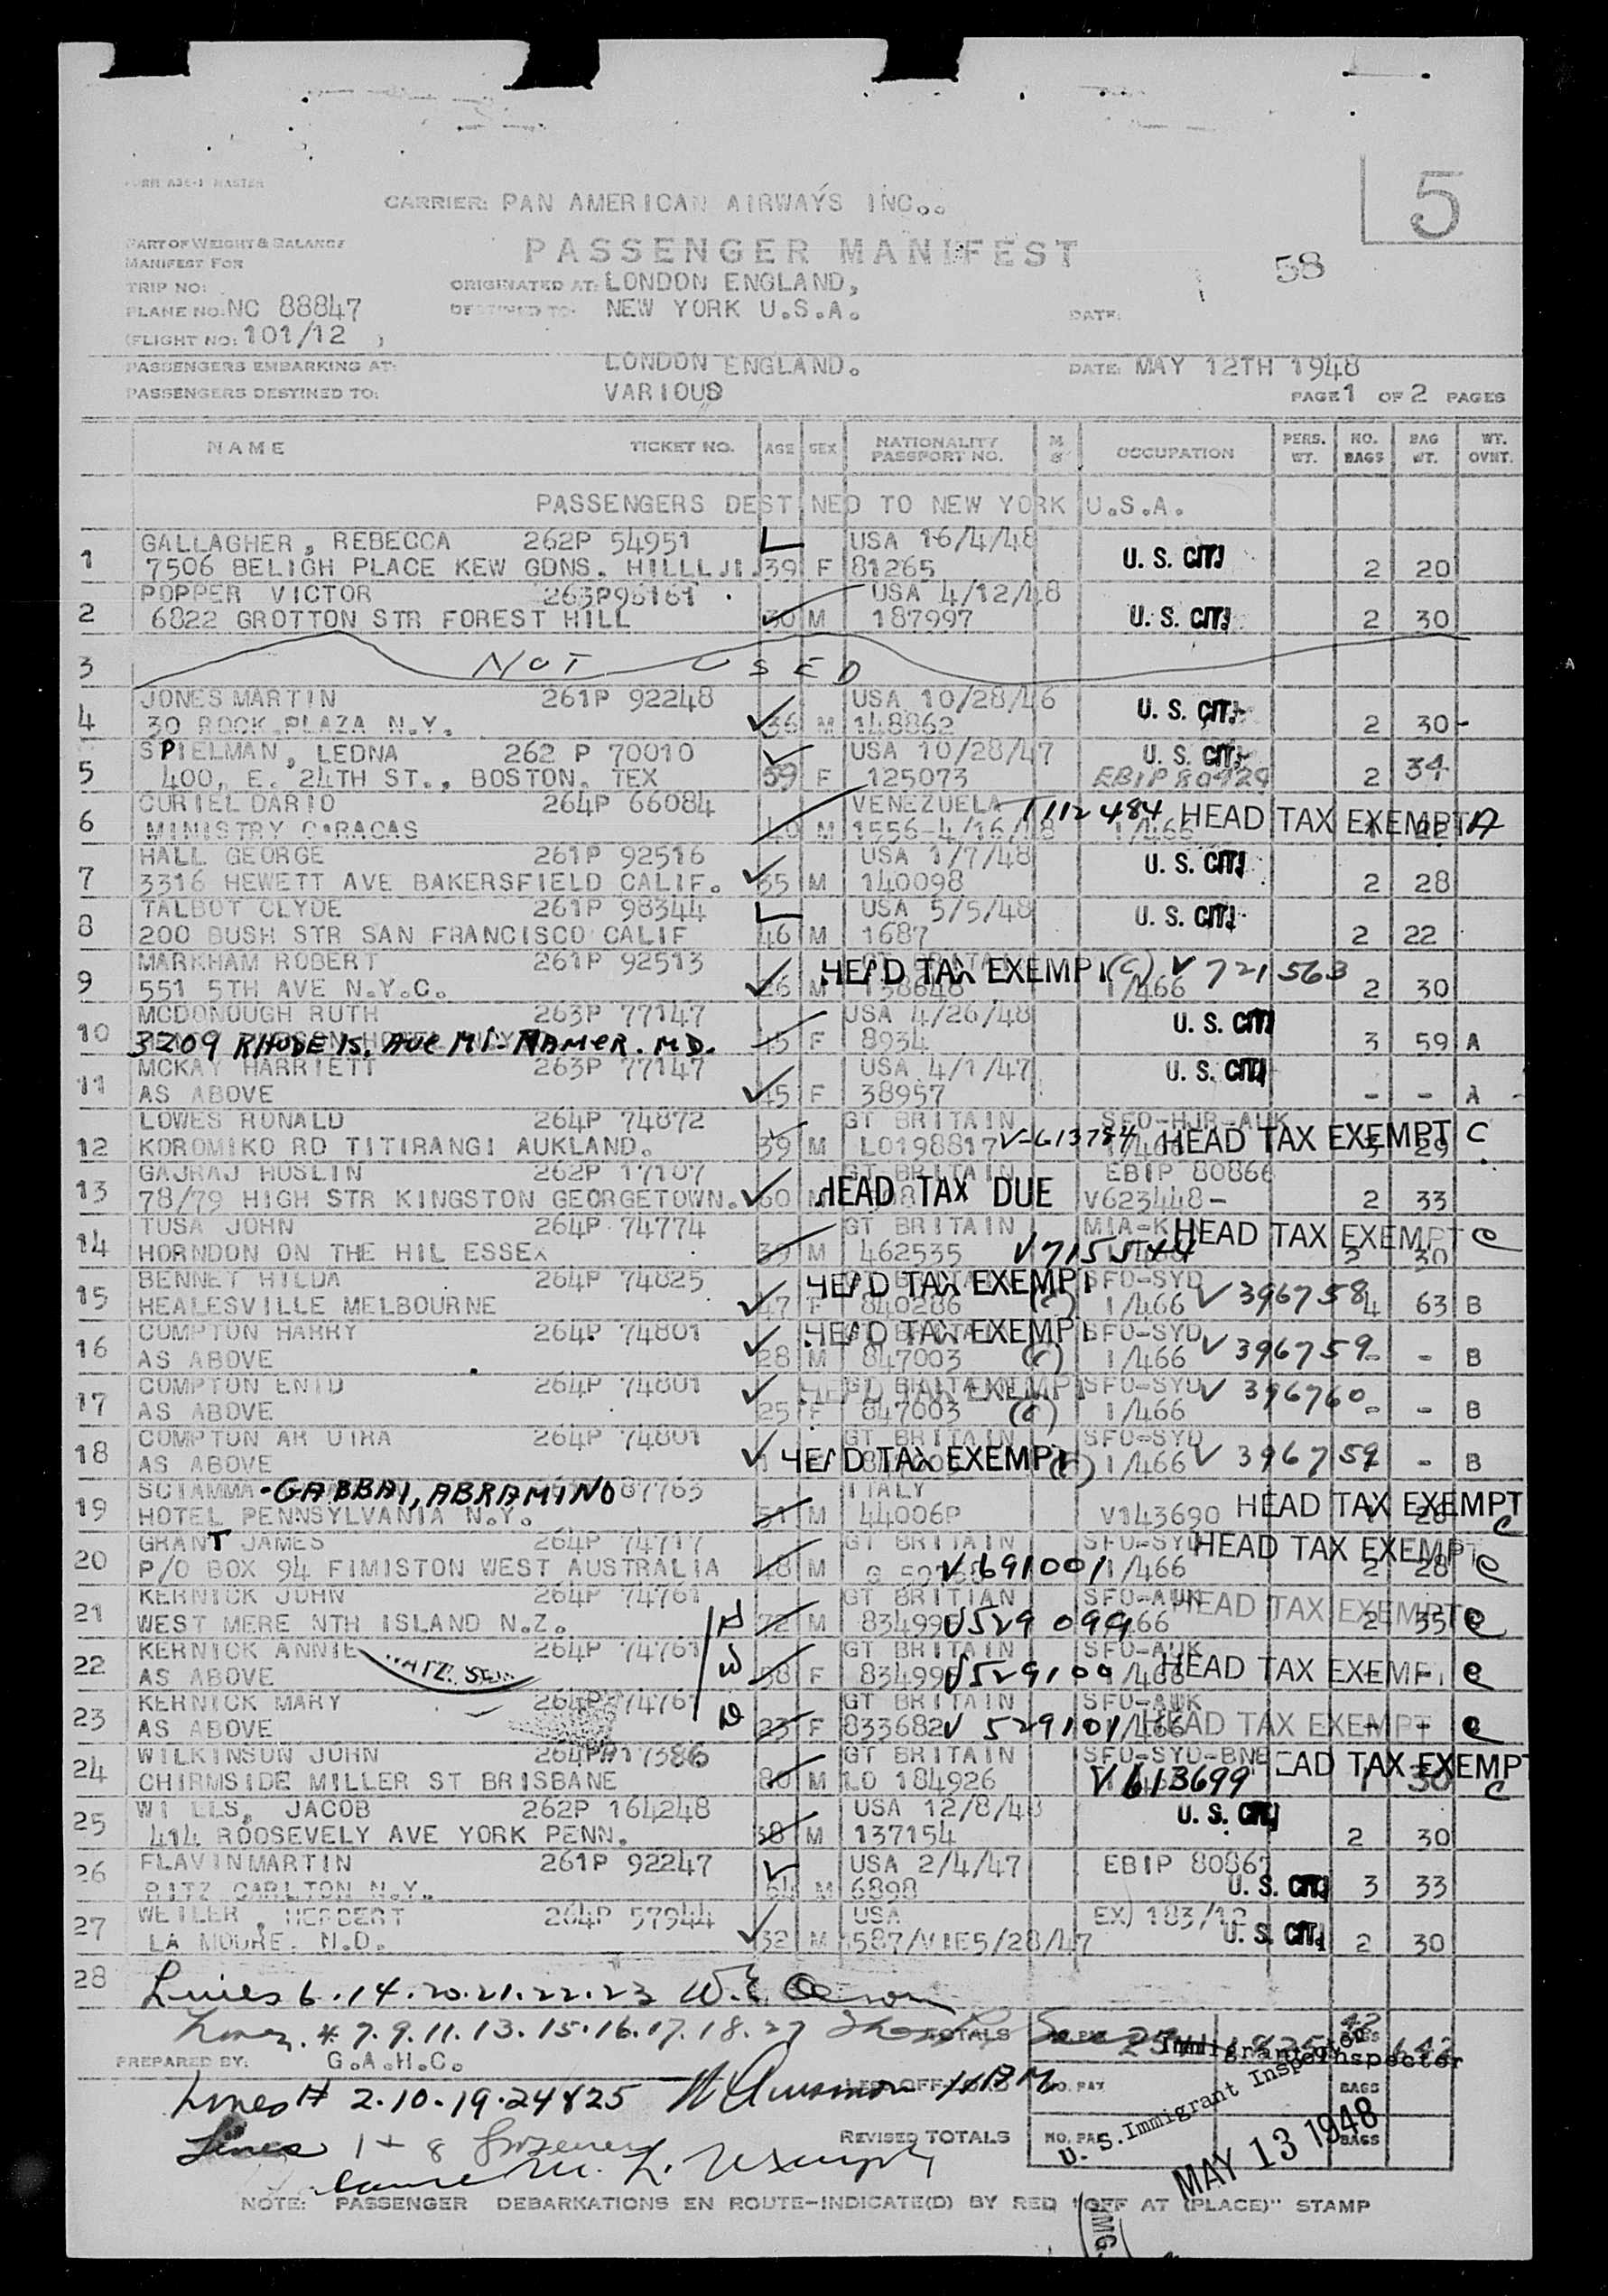 FORM A3E-1 MASTER
5
CARRIER: PAN AMERICAN AIRWAYS INC..
PART OF WEIGHT & BALANCE
MANIFEST FOR
PASSENGER MANIFEST
58
TRIP NO:
ORIGINATED AT: LONDON ENGLAND,
PLANE NO: NC 88847
DESTINED TO: NEW YORK U.S.A.
DATE:
(FLIGHT NO: 101/12 )
PASSENGERS EMBARKING AT: LONDON ENGLAND. DATE: MAY 12TH 1948
PASSENGERS DESTINED TO: VARIOUS PAGE 1 OF 2 PAGES
NAME TICKET NO. AGE SEX NATIONALITY PASSPORT NO. M S OCCUPATION PERS. WT. NO. BAGS BAG WT. WT. OVNT.
PASSENGERS DESTINED TO NEW YORK U.S.A.
1 GALLAGHER, REBECCA 262P 54951 USA 16/4/48 U. S. CIT.
7506 BELIGH PLACE KEW GDNS. HILLL JI. 39 F 81265 2 20
2 POPPER VICTOR 263P96161 USA 4/12/48 U. S. CIT.
6822 GROTTON STR FOREST HILL 30 M 187997 2 30
3 NOT USED
4 JONES MARTIN 261P 92248 USA 10/28/46 U. S. CIT.
30 ROCK PLAZA N.Y. 36 M 148862 2 30-
5 SPIELMAN, LEDNA 262 P 70010 USA 10/28/47 U. S. CIT.
400, E. 24TH ST., BOSTON. TEX 59 F 125073 EBIP 80929 2 34
6 CURIEL DARIO 264P 66084 VENEZUELA 1112484 HEAD TAX EXEMPT A
MINISTRY CARACAS 40 M 1556-4/16/48 1/466
7 HALL GEORGE 261P 92516 USA 1/7/48 U. S. CIT.
3316 HEWETT AVE BAKERSFIELD CALIF. 35 M 140098 2 28
8 TALBOT CLYDE 261P 98344 USA 5/5/48 U. S. CIT.
200 BUSH STR SAN FRANCISCO CALIF 46 M 1687 2 22
9 MARKHAM ROBERT 261P 92513 HEAD TAX EXEMPT (C) V 721563
551 5TH AVE N.Y.C. 26 M 138648 1/466 2 30
10 MCDONOUGH RUTH 263P 77147 USA 4/26/48 U. S. CIT.
3209 RHODE IS. AVE MT. RAINER. MD. 45 F 8934 3 59 A
11 MCKAY HARRIETT 263P 77147 USA 4/1/47 U. S. CIT.
AS ABOVE 45 F 38957 - - A
12 LOWES RONALD 264P 74872 GT BRITAIN SFO-HJR-AUK
KOROMIKO RD TITIRANGI AUKLAND. 39 M LO198817 V-613784 HEAD TAX EXEMPT C
13 GAJRAJ HUSLIN 262P 17107 GT BRITAIN EBIP 80866
78/79 HIGH STR KINGSTON GEORGETOWN. 60 HEAD TAX DUE V623448- 2 33
14 TUSA JOHN 264P 74774 GT BRITAIN HEAD TAX EXEMPT C
HORNDON ON THE HIL ESSEX 39 M 462535 V715544 2 30
15 BENNET HILDA 264P 74825 HEAD TAX EXEMPT SFO-SYD
HEALESVILLE MELBOURNE 47 F 840286 (C) 1/466 V 396758 4 63 B
16 COMPTON HARRY 264P 74801 HEAD TAX EXEMPT SFO-SYD
AS ABOVE 28 M 847003 (C) 1/466 V 396759 - - B
17 COMPTON ENID 264P 74801 HEAD TAX EXEMPT SFO-SYD V 396760
AS ABOVE 25 F 847003 (C) 1/466 - - B
18 COMPTON 264P 74801 GT BRITAIN SFO-SYD
AS ABOVE HEAD TAX EXEMPT (C) 1/466 V 396759 - B
19 SCIAMMA-GABBAI, ABRAMINO 87763 ITALY
HOTEL PENNSYLVANIA N.Y. 51 M 44006P V143690 HEAD TAX EXEMPT C
20 GRANT JAMES 264P 74717 GT BRITAIN SFO-SYD HEAD TAX EXEMPT
P/O BOX 94 FIMISTON WEST AUSTRALIA 48 M V691001 1/466 2 28 C
21 KERNICK JOHN 264P 74761 GT BRITIAN SFO-AUK HEAD TAX EXEMPT
WEST MERE NTH ISLAND N.Z. H 72 M 83499 V529099 2 35 C
22 KERNICK ANNIE 264P 74761 GT BRITAIN SFO-AUK
AS ABOVE W 58 F 83499 V529100 /466 HEAD TAX EXEMPT C
23 KERNICK MARY 264P 74761 GT BRITAIN SFO-AUK
AS ABOVE D 23 F 833682 V 529101 /466 HEAD TAX EXEMPT C
24 WILKINSON JOHN 17386 GT BRITAIN SFO-SYD-BNE HEAD TAX EXEMPT
CHIRMSIDE MILLER ST BRISBANE 80 M LO 184926 V613699 1 30 C
25 WILLS, JACOB 262P 164248 USA 12/8/48 U. S. CIT.
414 ROOSEVELY AVE YORK PENN. 38 M 137154 2 30
26 FLAVIN MARTIN 261P 92247 USA 2/4/47 EBIP 80867
RITZ CARLTON N.Y. 64 M 6898 U. S. CIT. 3 33
27 WEILER, HERBERT 264P 57944 USA EX) 183/12
LA MOURE. N.D. 32 M 587/VIE5/28/47 U. S. CIT. 2 30
28 Lines 6.14.20.21.22.23
Lines #7.9.11.13.15.16.17.18.27 TOTALS 42 642
PREPARED BY: G.A.H.C.
Immigrant Inspector
Lines # 2.10.19.24&25 NO. PAY BAGS
U. S. Immigrant Inspector
Lines 1 + 8 REVISED TOTALS NO. PAX BAGS
MAY 13 1948
NOTE: PASSENGER DEBARKATIONS EN ROUTE-INDICATE(D) BY RED "OFF AT (PLACE)" STAMP